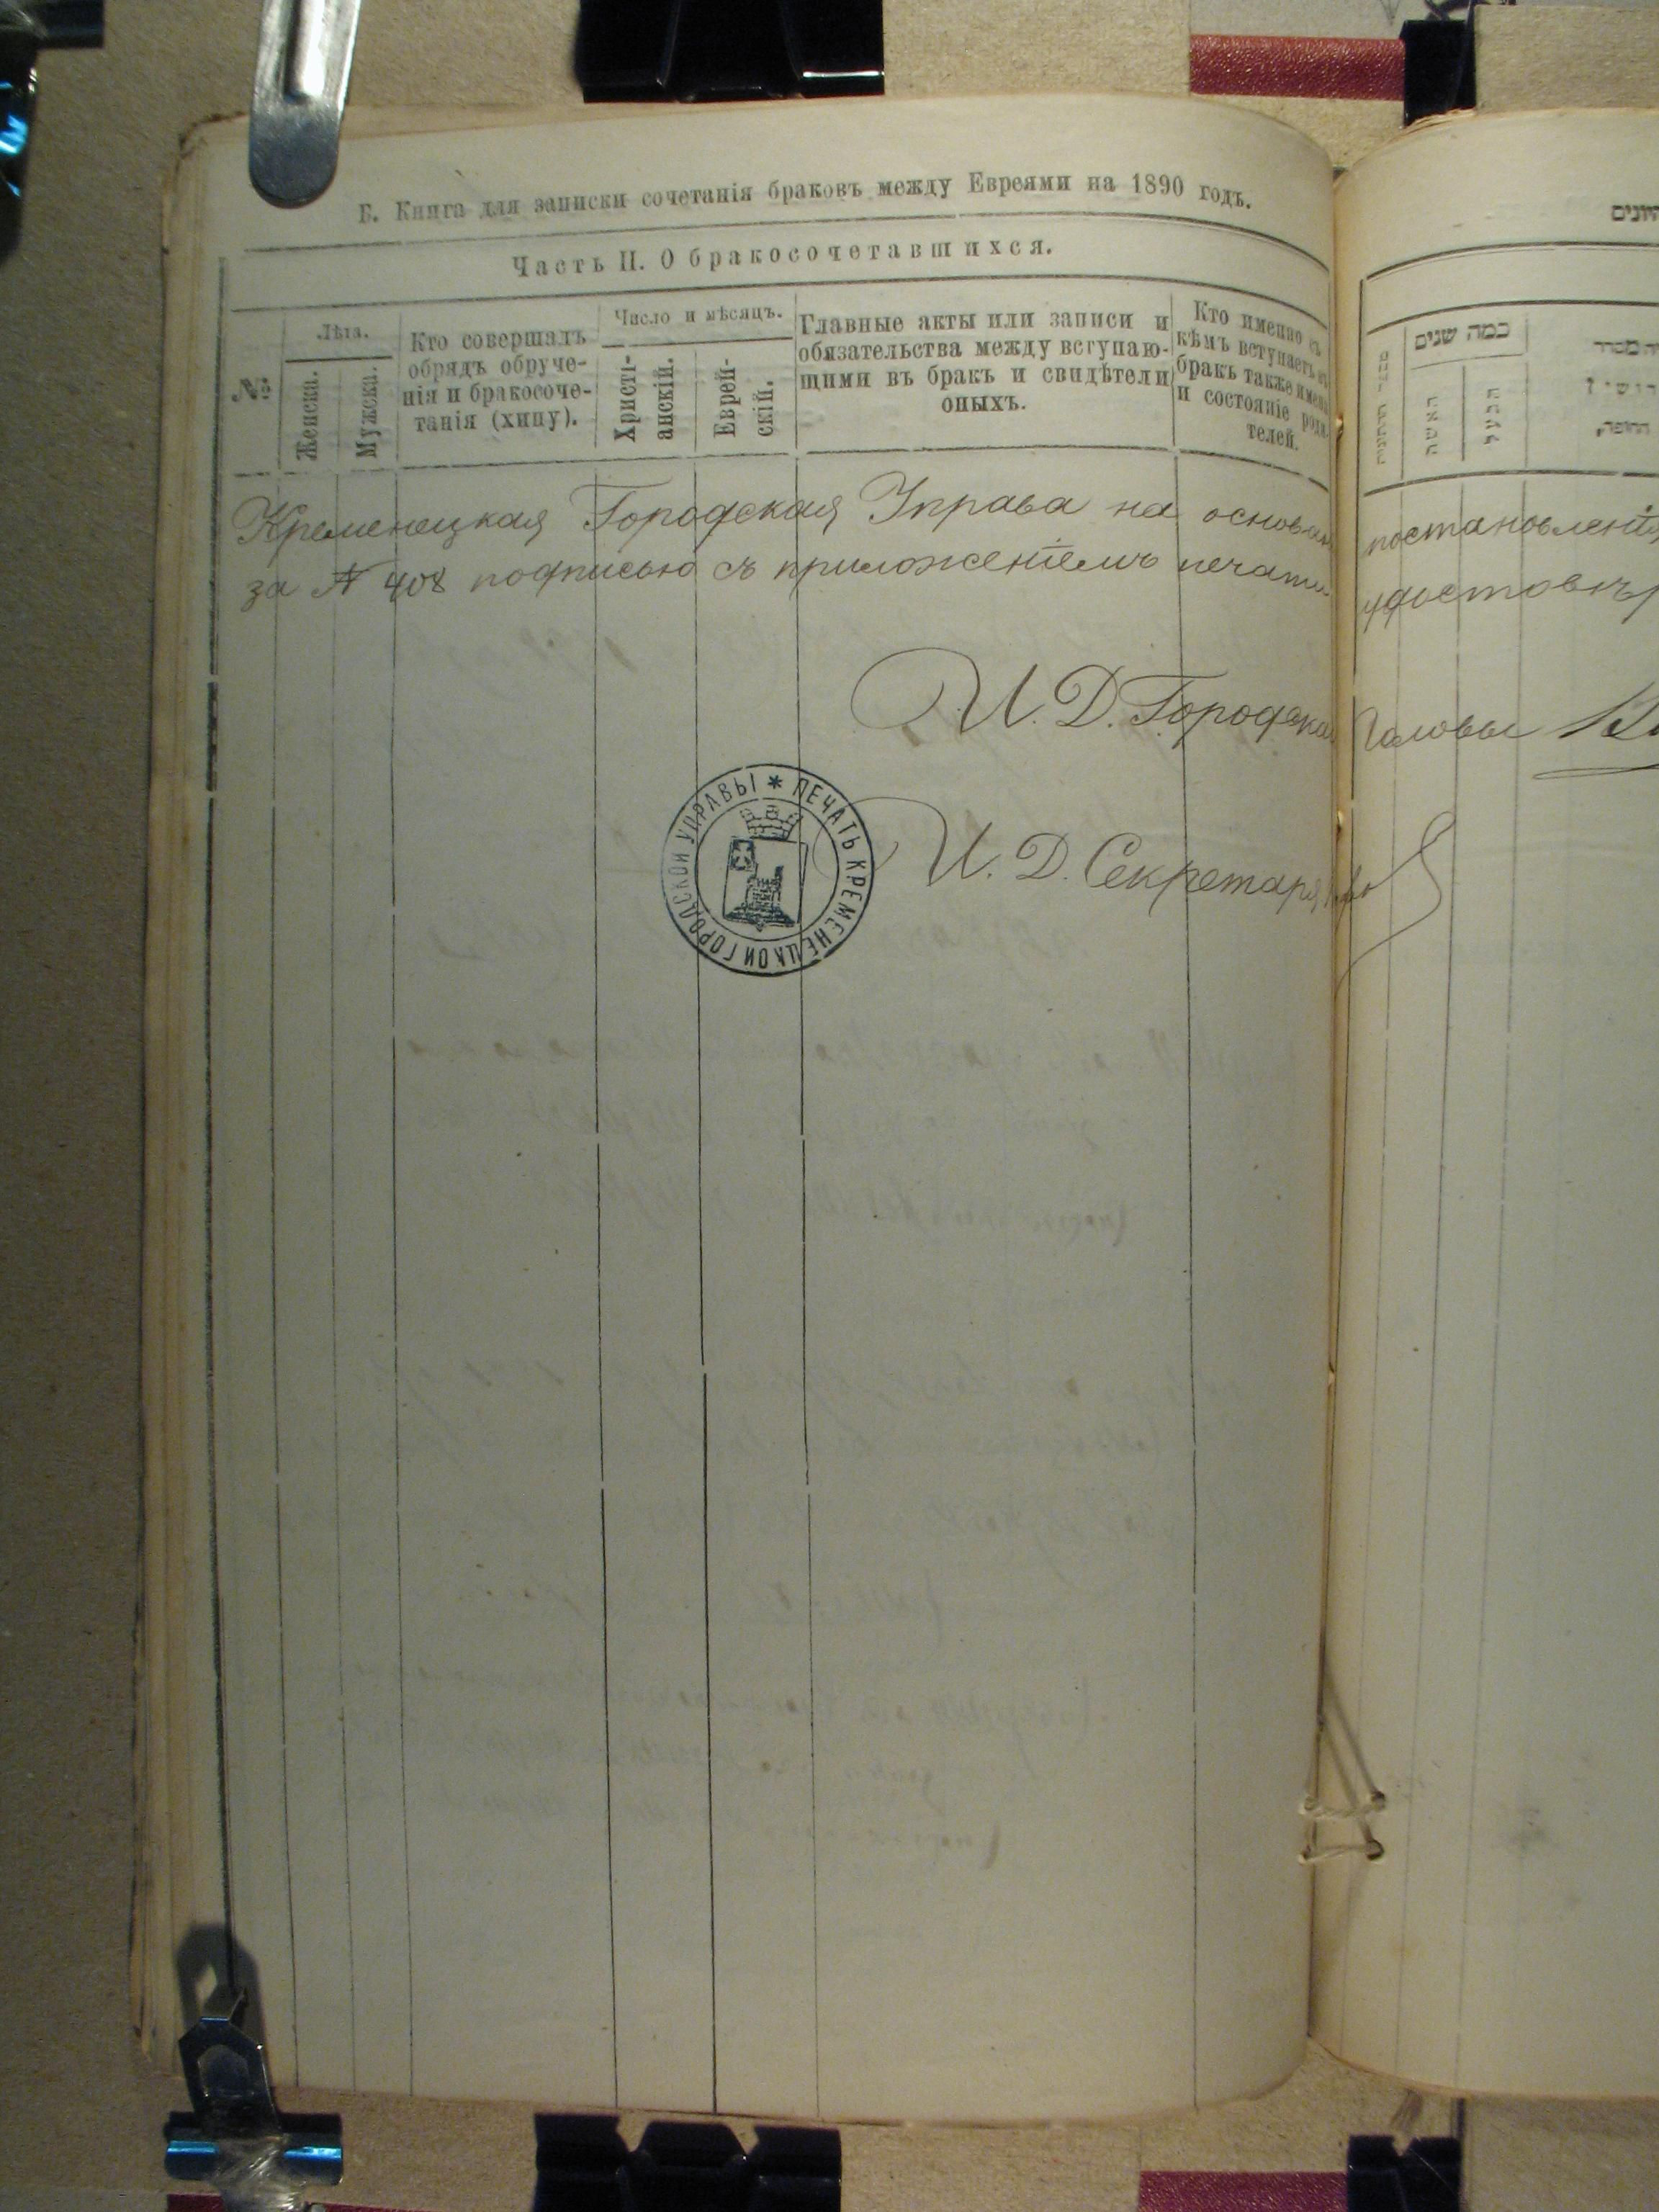 Б. Книга для записки сочетанія браковъ между Евреями на 1890 годъ.
Часть II. О бракосочетавшихся.
№
Лѣта.
Женска.
Мужска.
Кто совершалъ
обрядъ обруче-
нія и бракосоче-
танія (хипу).
Число и мѣсяцъ.
Христі-
анскій.
Еврей-
скій.
Главные акты или записи и
обязательства между вступаю-
щими въ бракъ и свидѣтели
оныхъ.
Кто именно съ
кѣмъ вступаетъ въ
бракъ также имена
и состояніе роди-
телей.
כמה שנים
האשה
הבעל
החופה,
Кременецкая Городская Управа на основан постановленія
за № 408 подписью съ приложеніемъ печати удостовѣр
И. Д. Городска Головы
И. Д. Секретаря
ПЕЧАТЬ КРЕМЕНЕЦКОЙ ГОРОДСКОЙ УПРАВЫ *